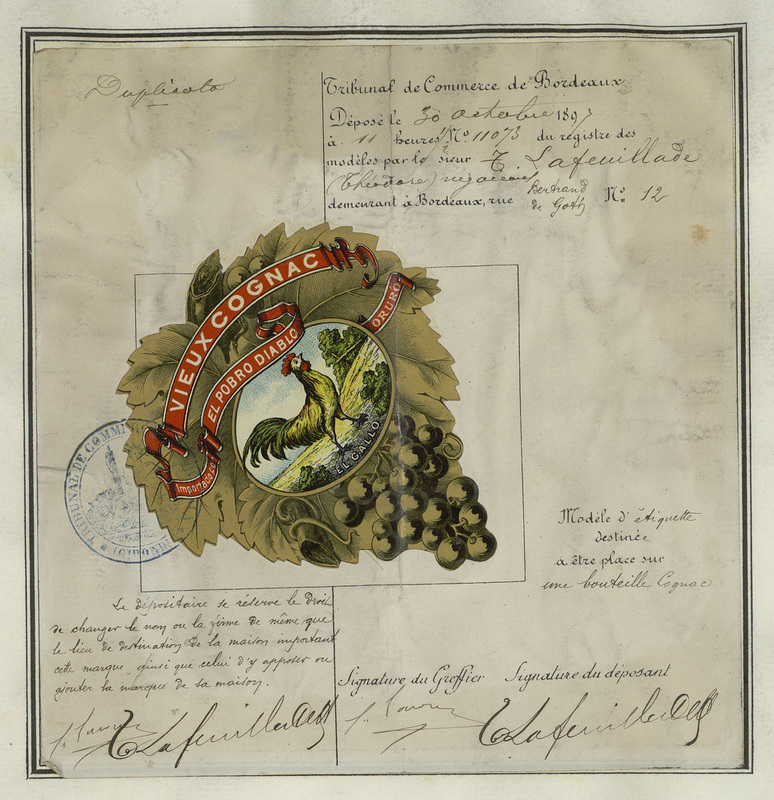 Duplicata
Tribunal de Commerce de Bordeaux
Déposé le 30 octobre 1897
à 11 heures N° 11073 du registre des
modèles par le sieur T. Lafeuillade
(Théodore) négociant
demeurant à Bordeaux, rue Bertrand de Goth N° 12
VIEUX COGNAC
EL POBRO DIABLO
Importado en
ORURO
EL GALLO
TRIBUNAL DE COMM
(GIRONDE
Modèle d'étiquette
destinée
a être place sur
une bouteille Cognac
Le dépositaire se réserve le droit
de changer le nom ou la firme de même que
le lieu de destination de la maison important
cette marque, ainsi que celui d'y apposer ou
ajouter la marque de sa maison.
Signature du Greffier Signature du déposant
T Lafeuillade
T Lafeuillade